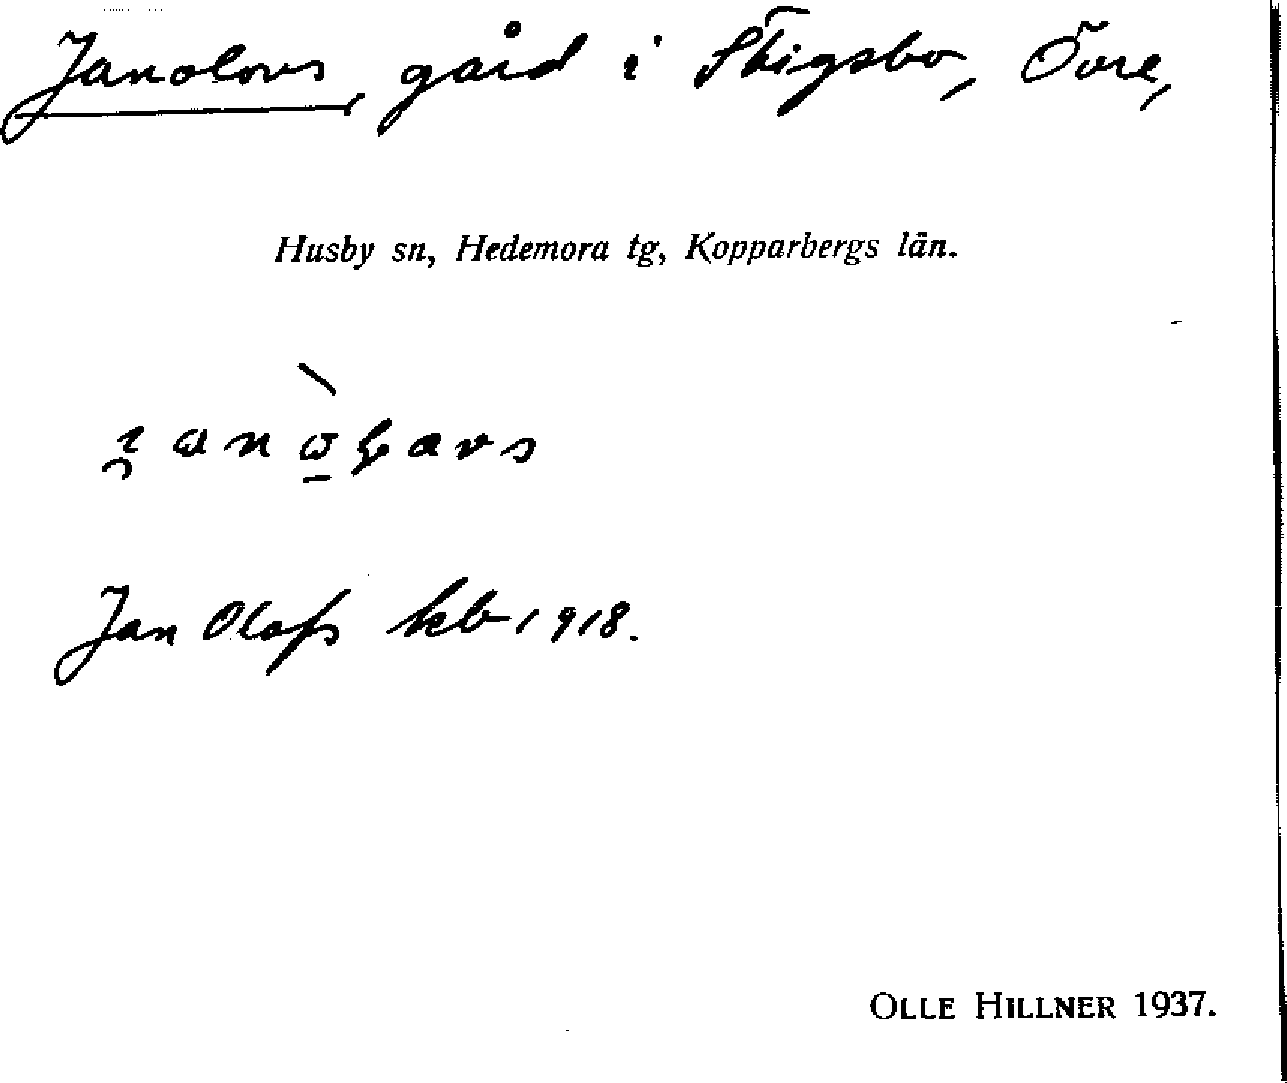 Janolovs, gård i Stigsbo, Övre,
Husby sn, Hedemora tg, Kopparbergs län.
Jan Olofs kb 1918.
OLLE HILLNER 1937.